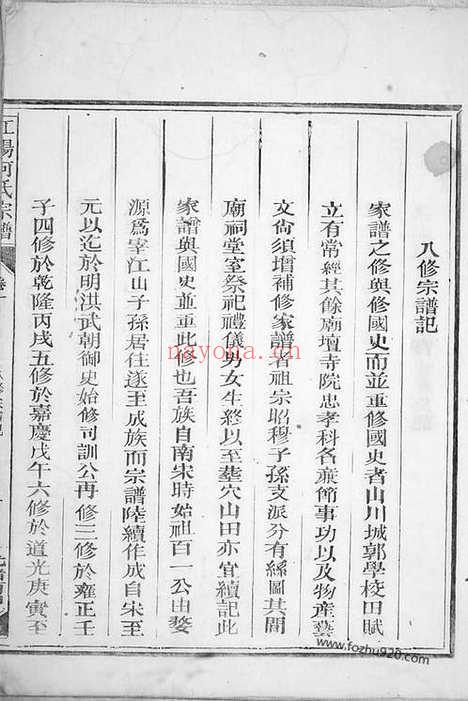 八修宗譜記
家譜之修與修國史而並重修國史者山川城郭學校田賦
立有常經其餘廟壇寺院忠孝科各義節事功以及物產藝
文尙須增補修家譜者祖宗昭穆子孫支派分有絲圖其間
廟祠堂室祭祀禮儀男女生終以至塟穴山田亦宜續記此
家譜與國史並重此修也吾族自南宋時始祖百一公由婺
源爲宰江山子孫居住遂至成族而宗譜陸續作成自宋至
元以迄於明洪武朝御史始修司訓公再修三修於雍正壬
子四修於乾隆丙戌五修於嘉慶戊午六修於道光庚寅至
江陽何氏宗譜
卷一
nayona.cn
www.fozhu920.com